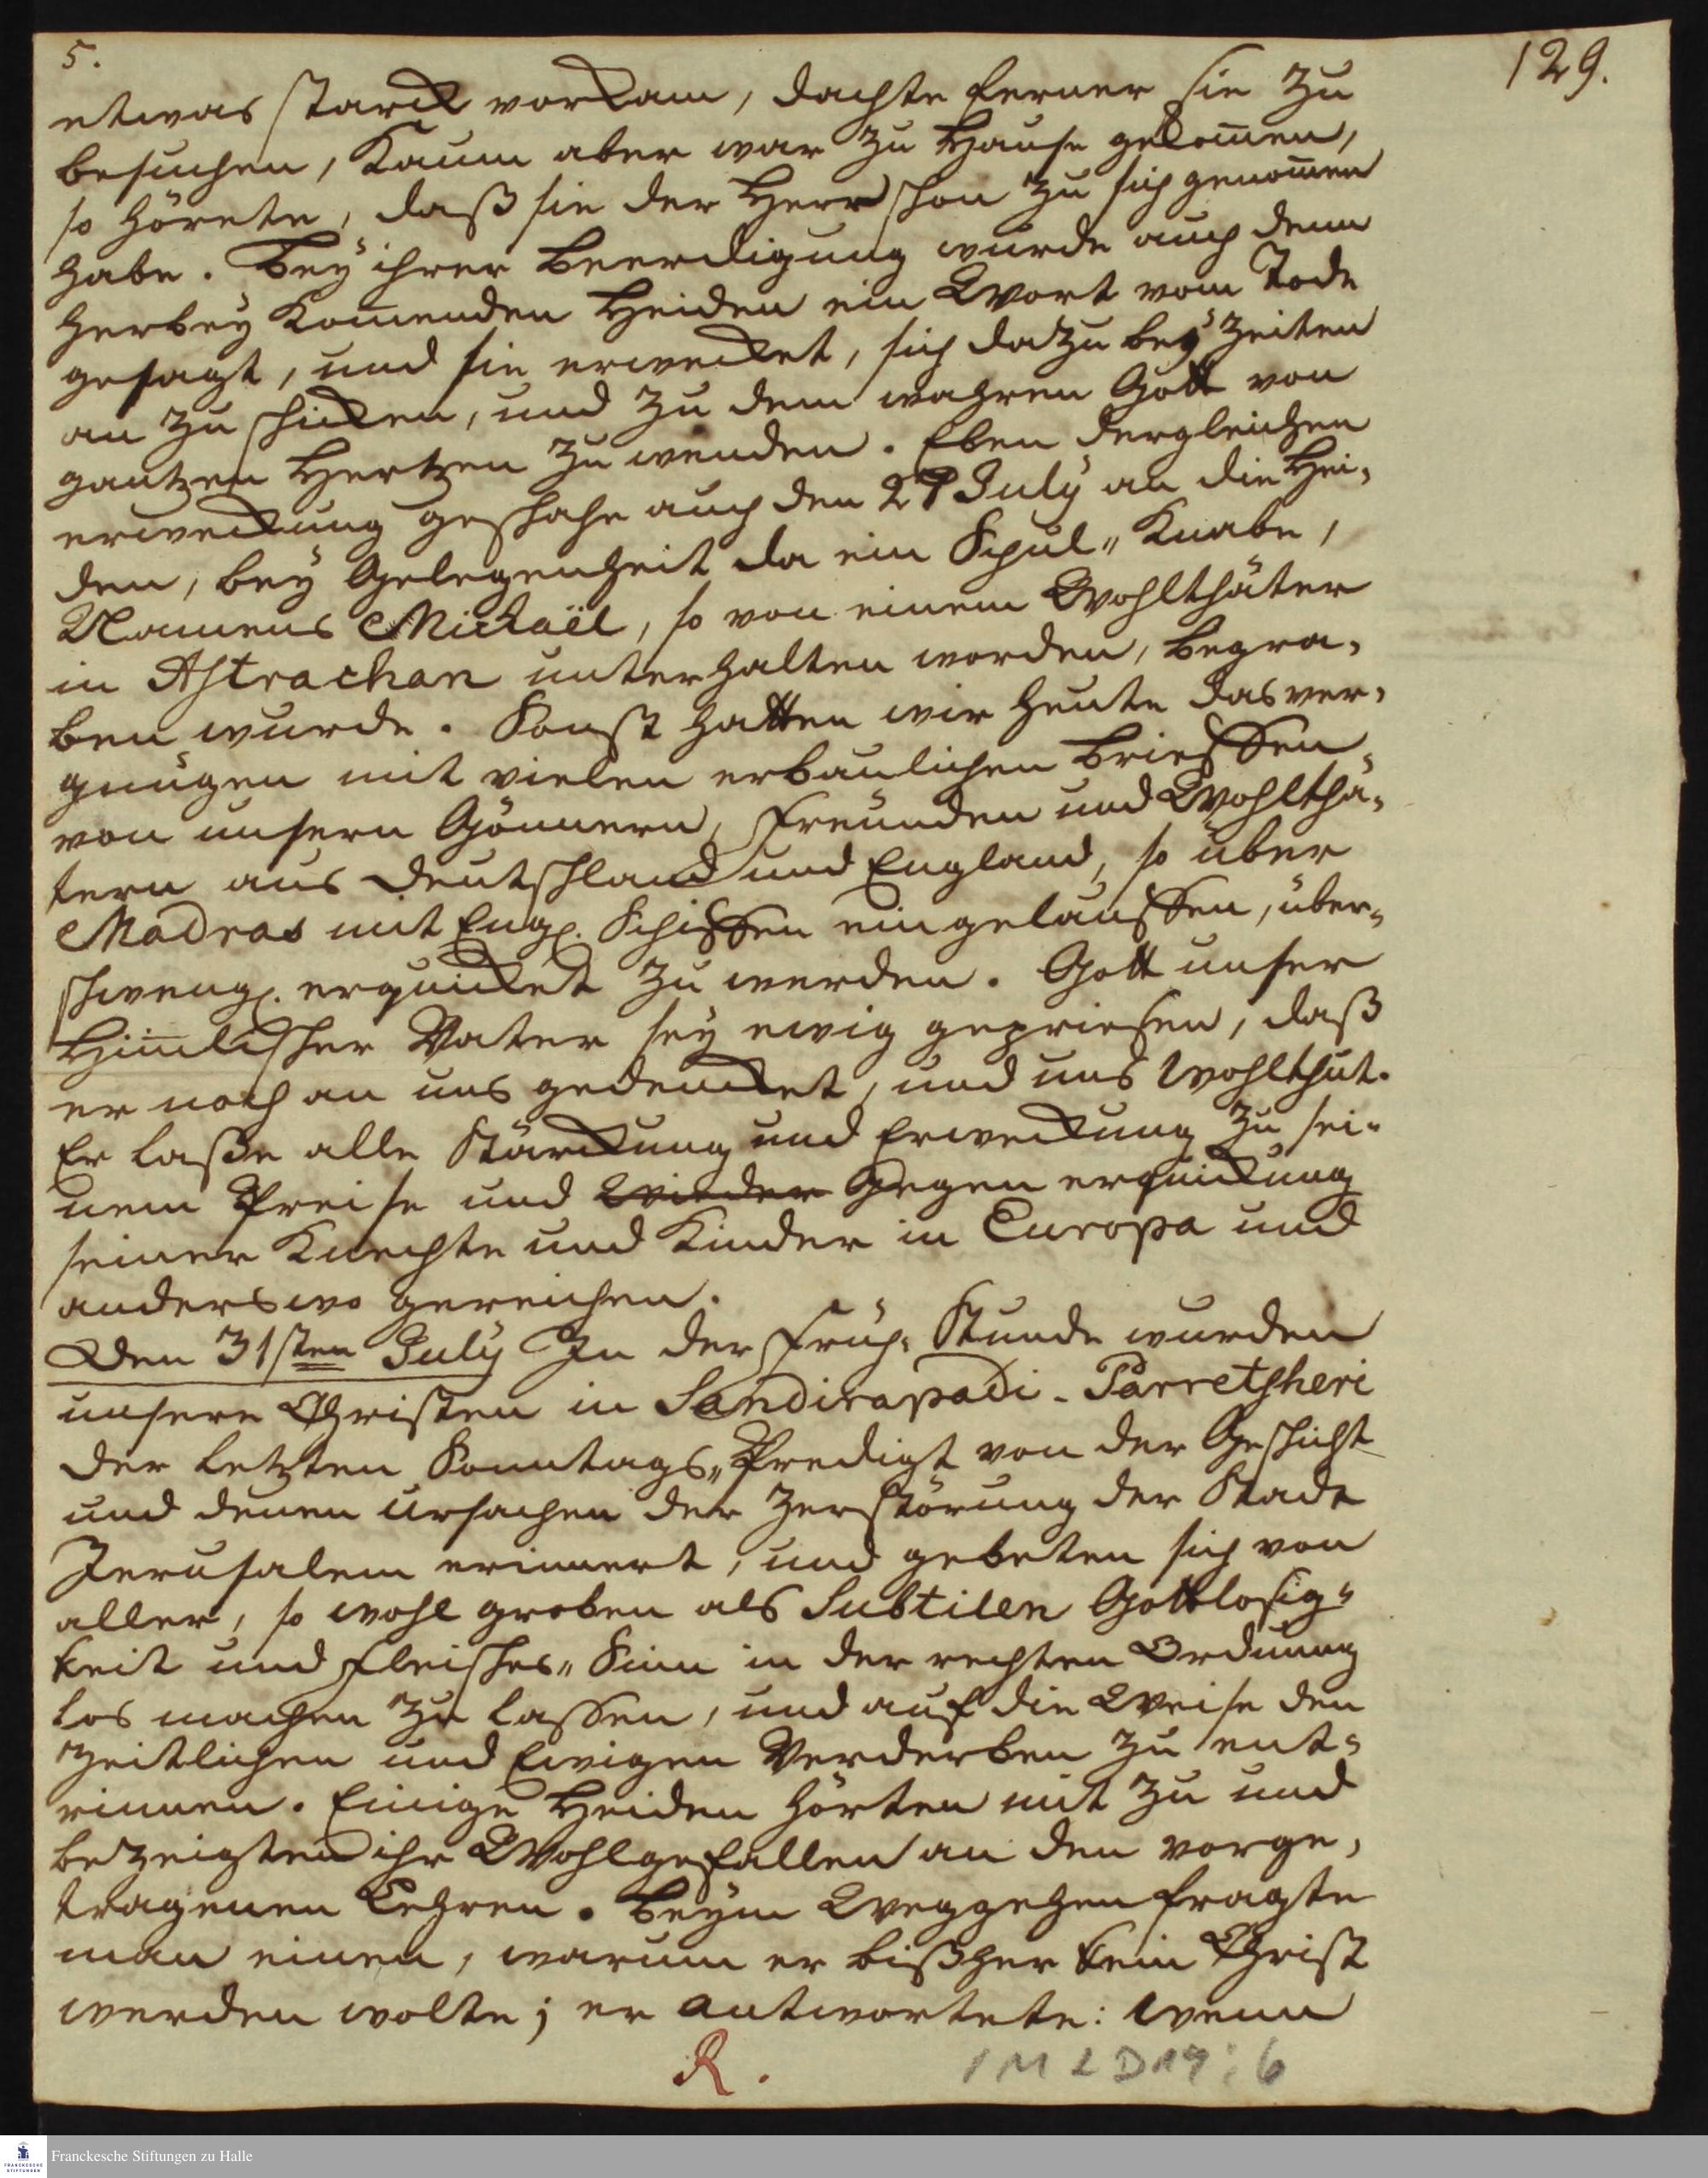 5.
129.
etwas starck vorkam, dachte ferner sie zu
besuchen, kaum aber war zu Hause gekom̄en,
so hörete, daß sie der Herr schon zu sich genom̄en
habe. Beÿ ihrer Beerdigung wurde auch denn
herbeÿ kom̄enden Heiden ein Wort vom Tode
gesagt, und sie erwecket, sich dazu beÿ Zeiten
an zu schicken, und zu dem wahren Gott von
gantzen Hertzen zu wenden. Eben dergleichen
erweckung geschahe auch den July an die Hei,
den, beÿ Gelegenheit da ein Schul„ Knabe,
Namens Michaël, so von einem Wohlthäter
in Astrachan unterhalten worden, begra,
ben wurde. Sonst hatten wir heute das ver,
gnügen mit vielen erbaulichen Brieffen
von unsern Gönnern, Freunden und Wohlthä,
tern aus Deutschland und England, so über
Madras mit Engl. Schiffen eingelauffen, über„
schwengl. erquicket zu werden. Gott unser
Him̄lischer Vater seÿ ewig gepriesen, daß
er noch an uns gedencket, und uns wohlthut.
Er laße alle Stärckung und Erweckung zu sei„
nem Preise und Wieder Gegen erquickung
seiner Knechte und Kinder in Europa und
anderswo gereichen.
Den 31sten July In der Früh„ Stunde wurden
unsere Christen in Sandirapadi - Parretsheri
der letzten Sonntags„ Predigt von der Geschicht
und denen Ursachen der Zerstörung der Stadt
Jerusalem erinnert, und gebeten sich von
aller, so wohl groben als Subtilen Gottlosig„
keit und Fleisches„ Sinn in der rechten Ordnung
los machen zu lassen, und auf die Weise den
zeitlichen und Ewigen Verderben zu ent„
rinnen. Einige Heiden hörten mit zu und
bezeigten ihr Wohlgefallen an den vorge,
tragenen Lehren. Beÿm Weggehen fragte
man einen, warum er bißher kein Christ
werden wolte; er antwortete: wenn
R.
1 M 2 D 14 : 6
Franckesche Stiftungen zu Halle